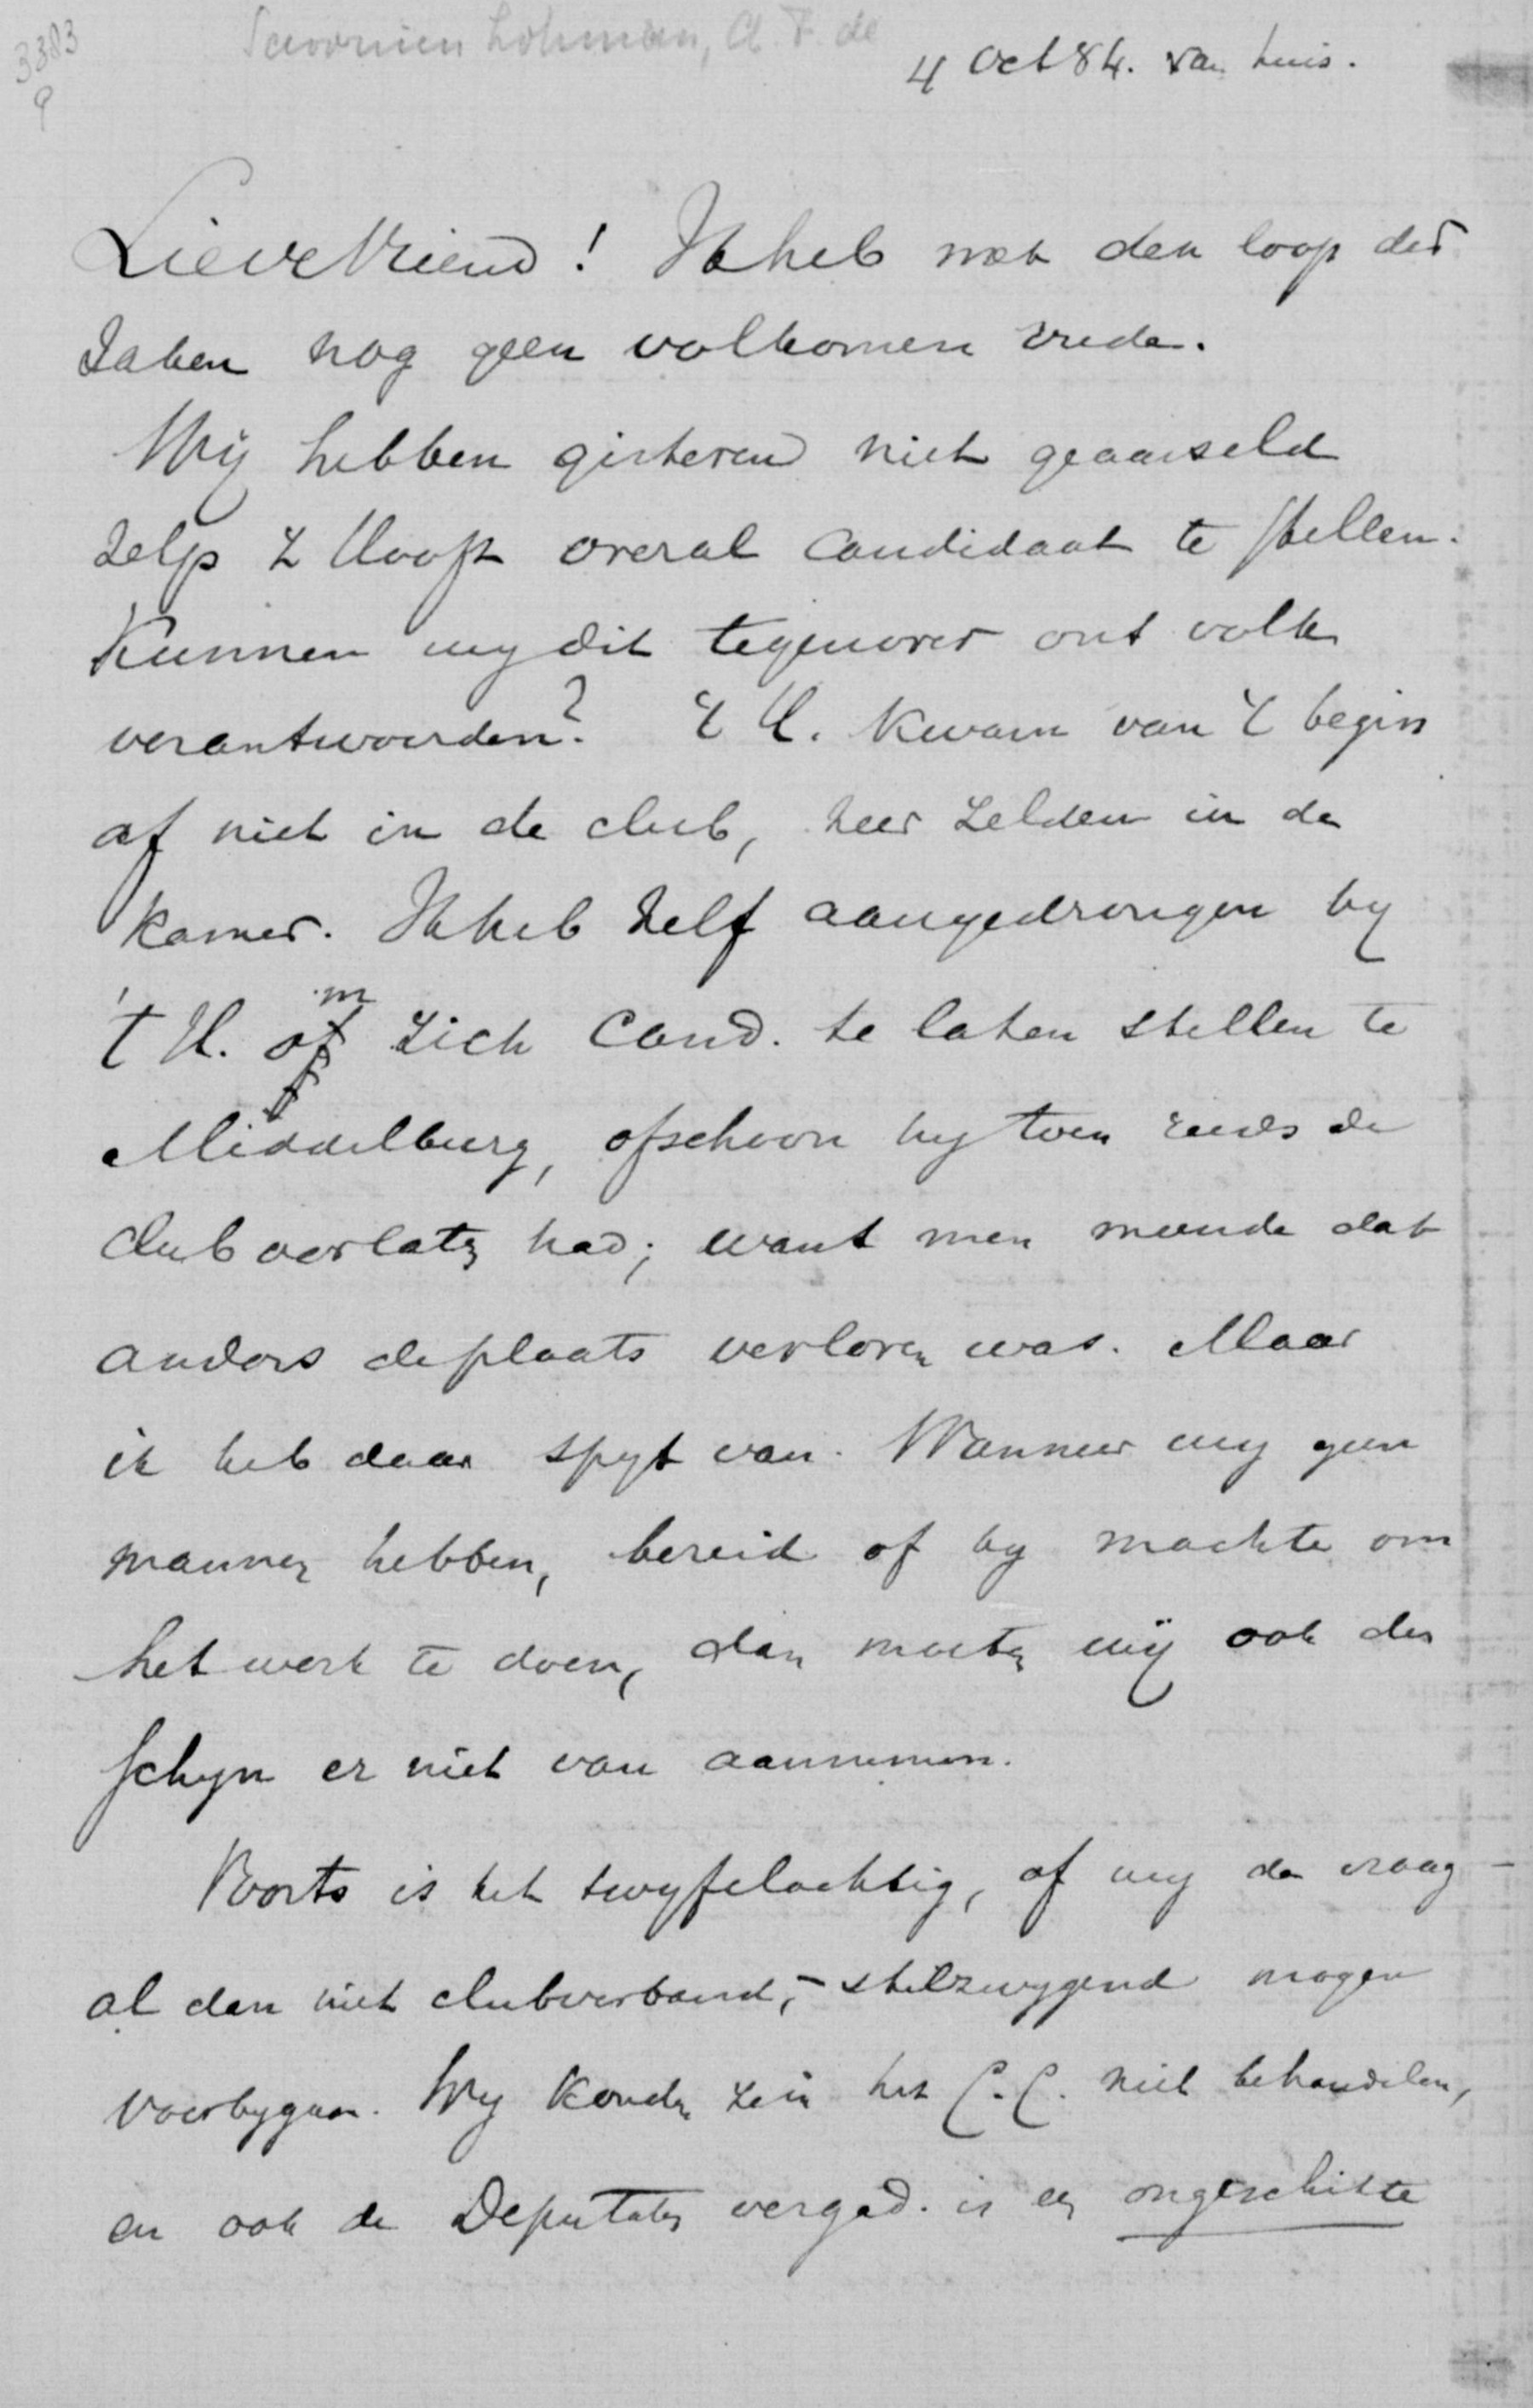 3383
9
Savornin Lohman, A. F. de
4 Oct 84. van huis.
Lieve Vriend! Ik heb met den loop der
zaken nog geen volkomen vrede.
Wij hebben gisteren niet geaarseld
zelfs 't Hooft overal candidaat te stellen.
Kunnen wy dit tegenover ons volk
verantwoorden? 't H. kwam van 't begin
af niet in de club, zeer zelden in de
kamer. Ik heb zelf aangedrongen by
't H. om zich cand. te laten stellen te
Middelburg, ofschoon hy toen reeds de
club verlaten had; want men meende dat
anders de plaats verloren was. Maar
ik heb daar spyt van. Wanneer wy geen
mannen hebben, bereid of by machte om
het werk te doen, dan moeten wij ook den
schyn er niet van aannemen.
Voorts is het twyfelachtig, of wy de vraag –
al dan niet clubverband, – stilzwygend mogen
voorbygaan. Wy konden ze in het C.C. niet behandelen,
en ook de Deputaten vergad. is een ongeschikte